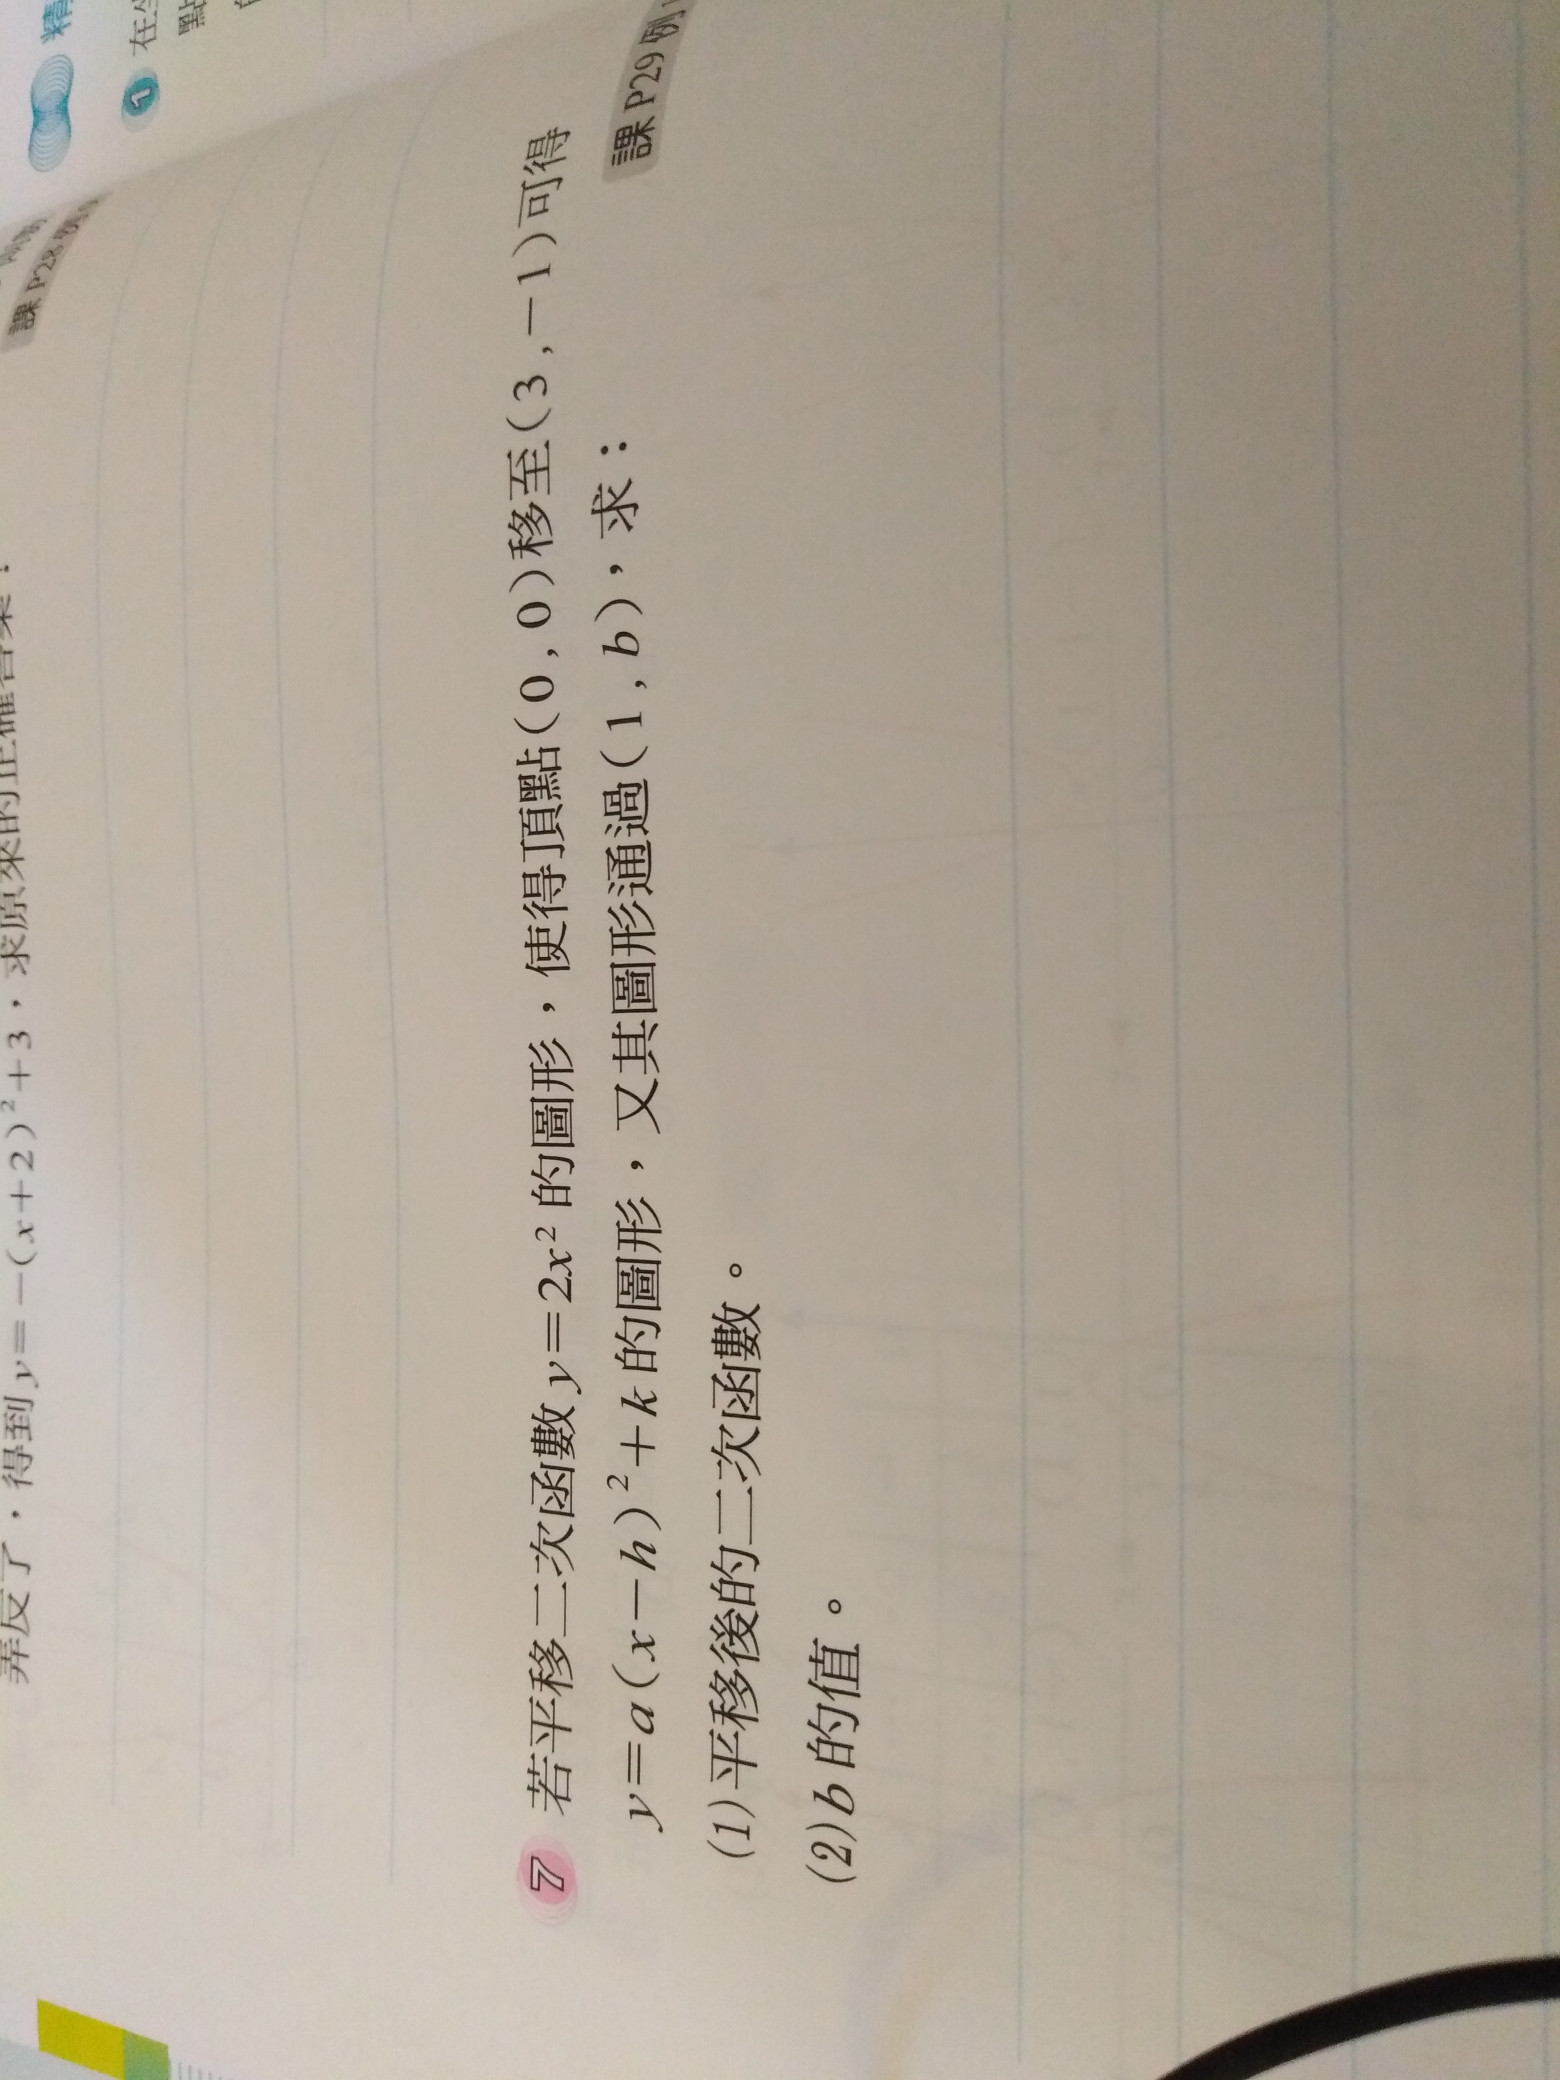 弄反了，得到y=-(x+2)²+3，求原來的正確答案！
課P28例
7 若平移二次函數y=2x²的圖形，使得頂點(0,0)移至(3,-1)可得
y=a(x-h)²+k的圖形，又其圖形通過(1,b)，求：
課P29例
(1)平移後的二次函數。
(2)b的值。
精
1 在
點